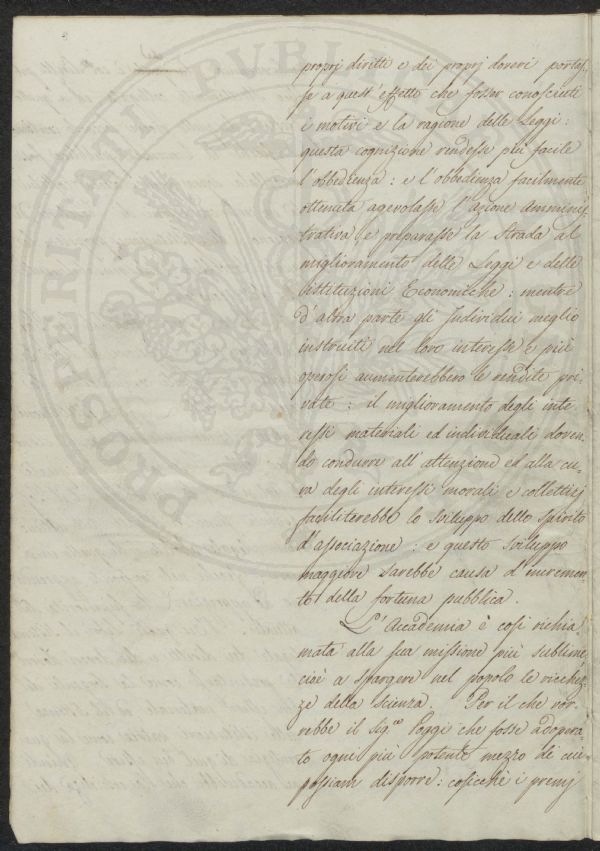 propri diritti e dei proprj doveri portas
se a quest'effetto che fosser conosciuti
i motivi e la ragione delle Leggi:
questa cognizione rendesse più facile
l'obbedienza: e l'obbedienza facilmente
ottenuta agevolasse l'azione amminis
trativa e preparasse la strada al
miglioramento delle Leggi e delle
Istituzioni Economiche: mentre
d'altra parte gli Individui meglio
instruiti nel loro interesse e più
operosi aumenterebbero le rendite pri-
vate: il miglioramento degli inte-
ressi materiali ed individuali doven-
do condurre all'attenzione ed alla cu-
ra degli interessi morali e collettivj
faciliterebbe lo sviluppo dello spirito
d'associazione: e questo sviluppo
maggiore sarebbe causa d'incremen-
to della fortuna pubblica.
L'Accademia è così richia-
mata alla sua missione più sublime
cioè a spargere nel popolo le ricchez-
ze della scienza. Per il che vor-
rebbe il sig.re Poggi che fosse adopera-
to ogni più potente mezzo di cui
possiam disporre: cosicchè i premj
PROSPERITATI PUBLI